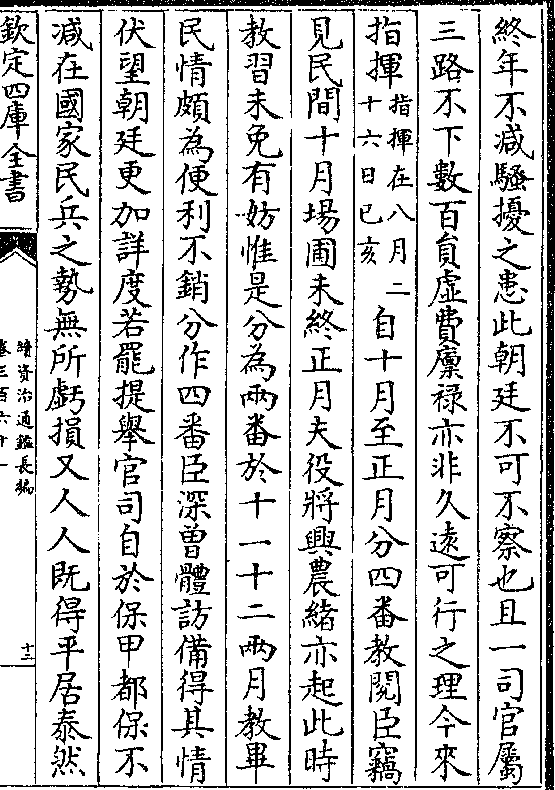 終年不减騷擾之患此朝廷不可不察也且一司官屬
三路不下數百貟虛費廩祿亦非久遠可行之理今來
指揮
指揮在八月二
十六日已亥
自十月至正月分四番教閱臣竊
見民間十月場圃未終正月夫役將興農緒亦起此時
教習未免有妨惟是分為兩番於十一十二兩月教畢
民情頗為便利不銷分作四番臣深曽體訪備得其情
伏望朝廷更加詳度若罷提舉官司自於保甲都保不
减在國家民兵之勢無所虧損又人人既得平居泰然
欽定四庫全書
續資治通鑑長編
卷三百六十一
十三